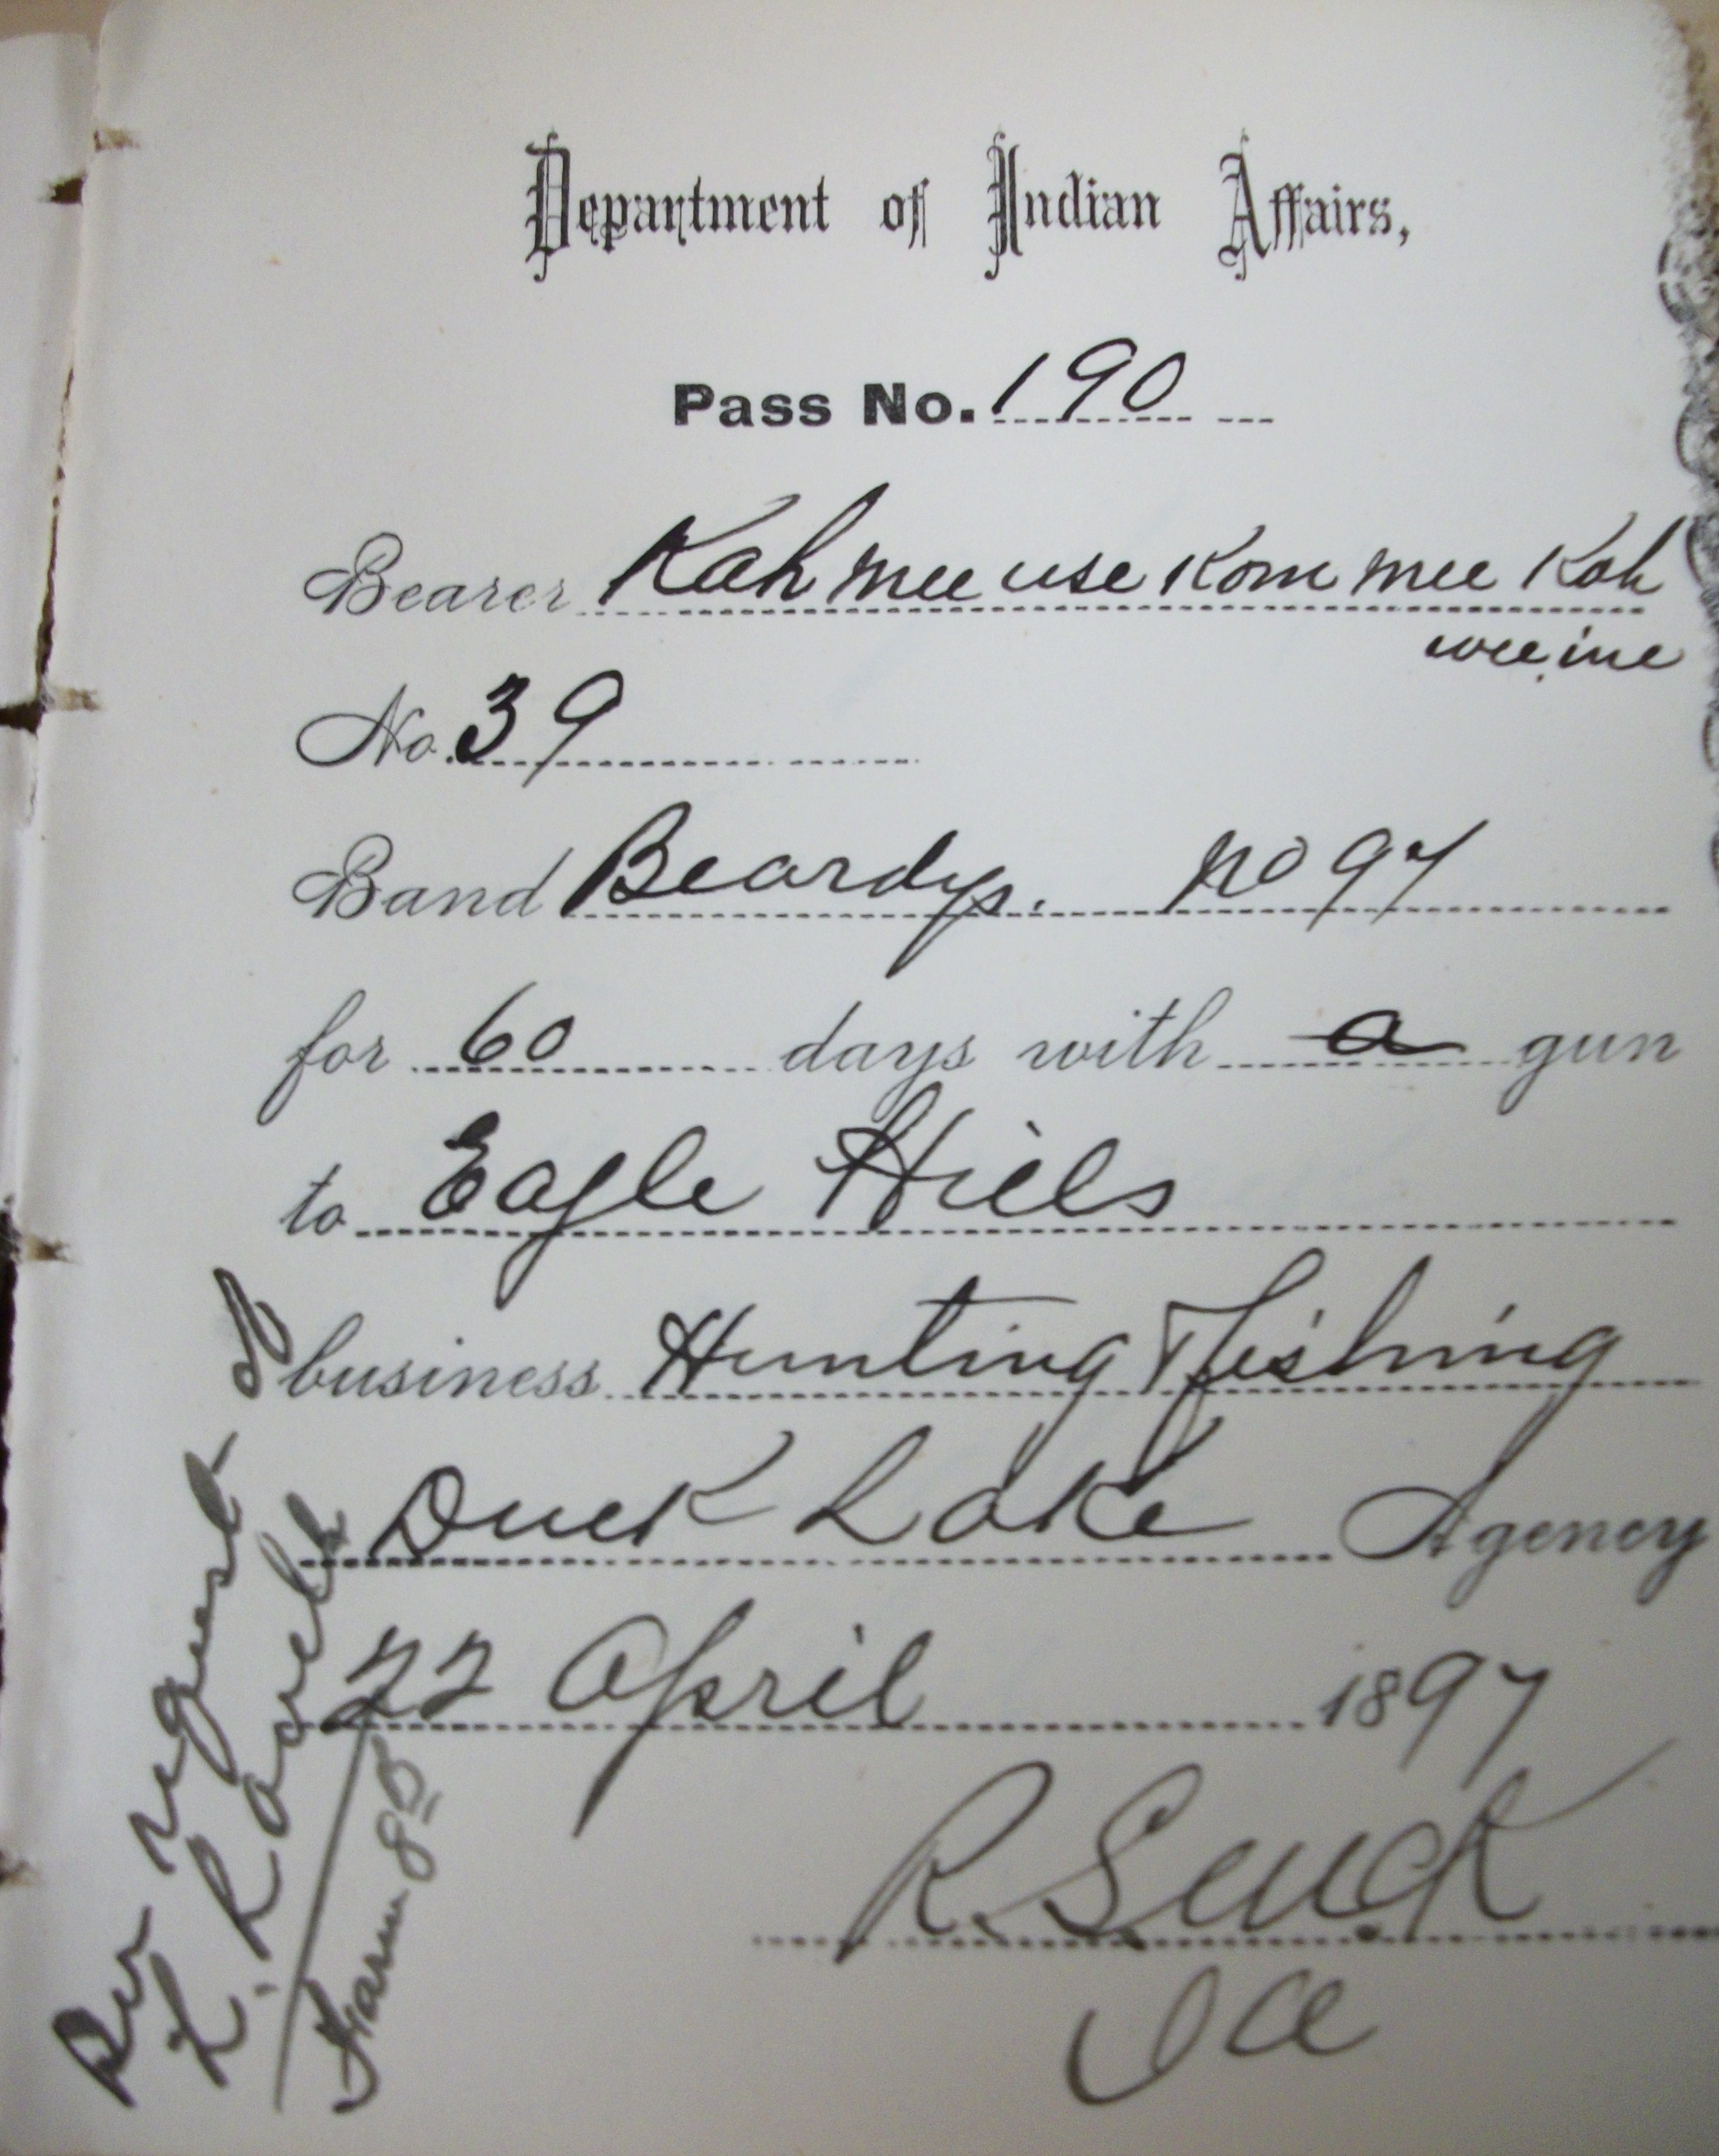 Department of Indian Affairs,
Pass No. 190
Bearer Kah mee use Kom mee Kah
wee ine
No. 39
Band Beardys. No 97
for 60 days with a gun
to Eagle Hills
business Hunting & Fishing
Duck Lake Agency
22 April 1897
R. S.
IA
Per request of
L.
Farm 8B